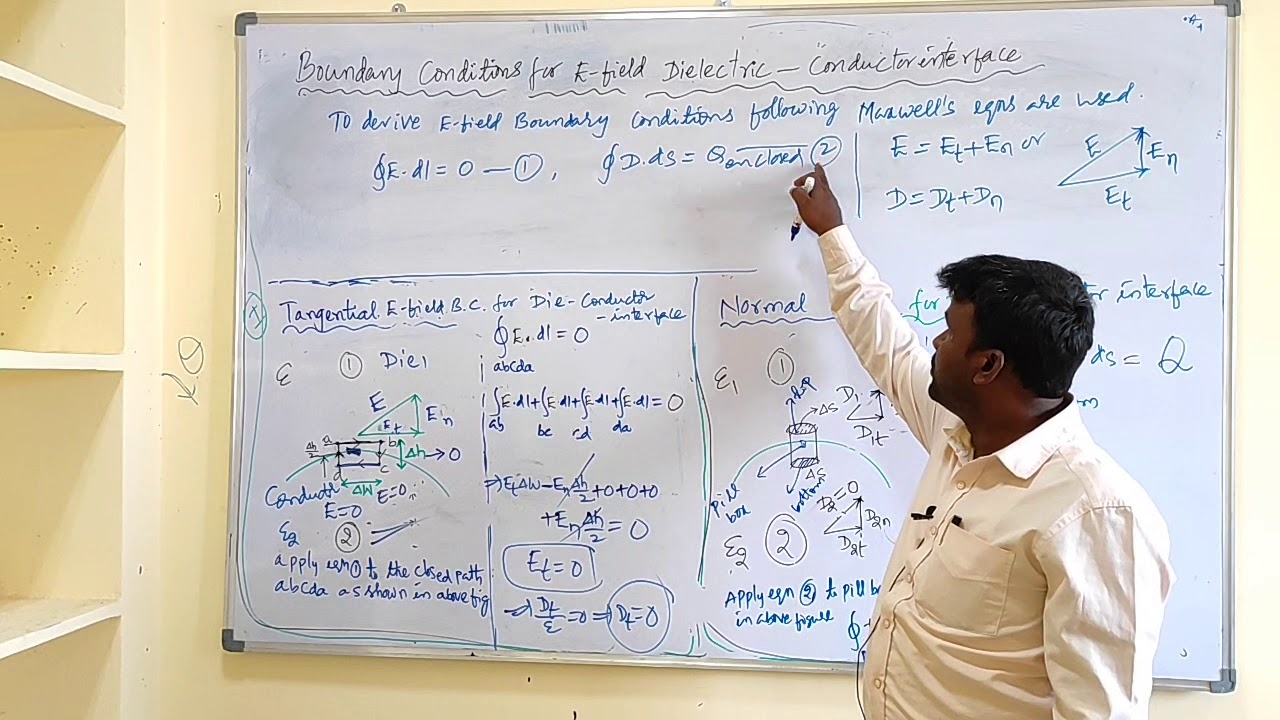 Boundary Conditions for E-field Dielectric - Conductor interface
To derive E-field Boundary Conditions following Maxwell's eqns are used.
∮E.dl = 0 — ①, ∮D.ds = Qenclosed ②
E = Et + En or
D = Dt + Dn
E
En
Et
Tangential E-field B.C. for Die-Conductor
-interface
ε ① Die1
E
En
Et
Δh/2 a b Δh → 0
c
ΔW
Conductor E=0
E=0
ε2 ②
apply eqn ① to the closed path
abcda as shown in above fig
∮E.dl = 0
abcda
∫E.dl + ∫E.dl + ∫E.dl + ∫E.dl = 0
ab bc cd da
⇒ EtΔW - En Δh/2 + 0 + 0 + 0
+ En Δh/2 = 0
Et = 0
⇒ Dt/ε = 0 ⇒ Dt = 0
Normal for
interface
ds = Q
ε1 ①
top
ΔS
D1
D1t
ΔS
Pill
box
bottom
D2=0
D2n
D2t
ε2 ②
Apply eqn ② to pill
in above figure
∮